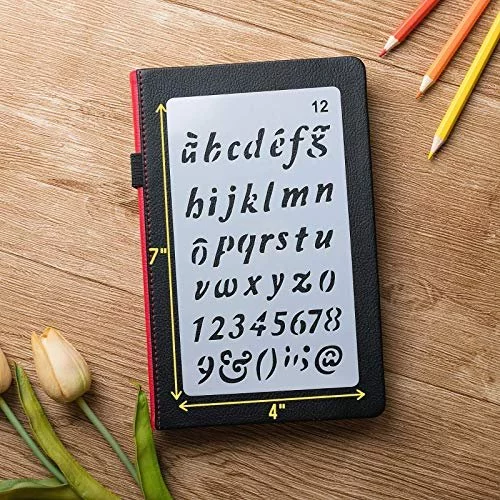 12
àbcdéfg̃
hijklmn
ôpqrstu
vwxyz0
12345678
9&();@
7"
4"